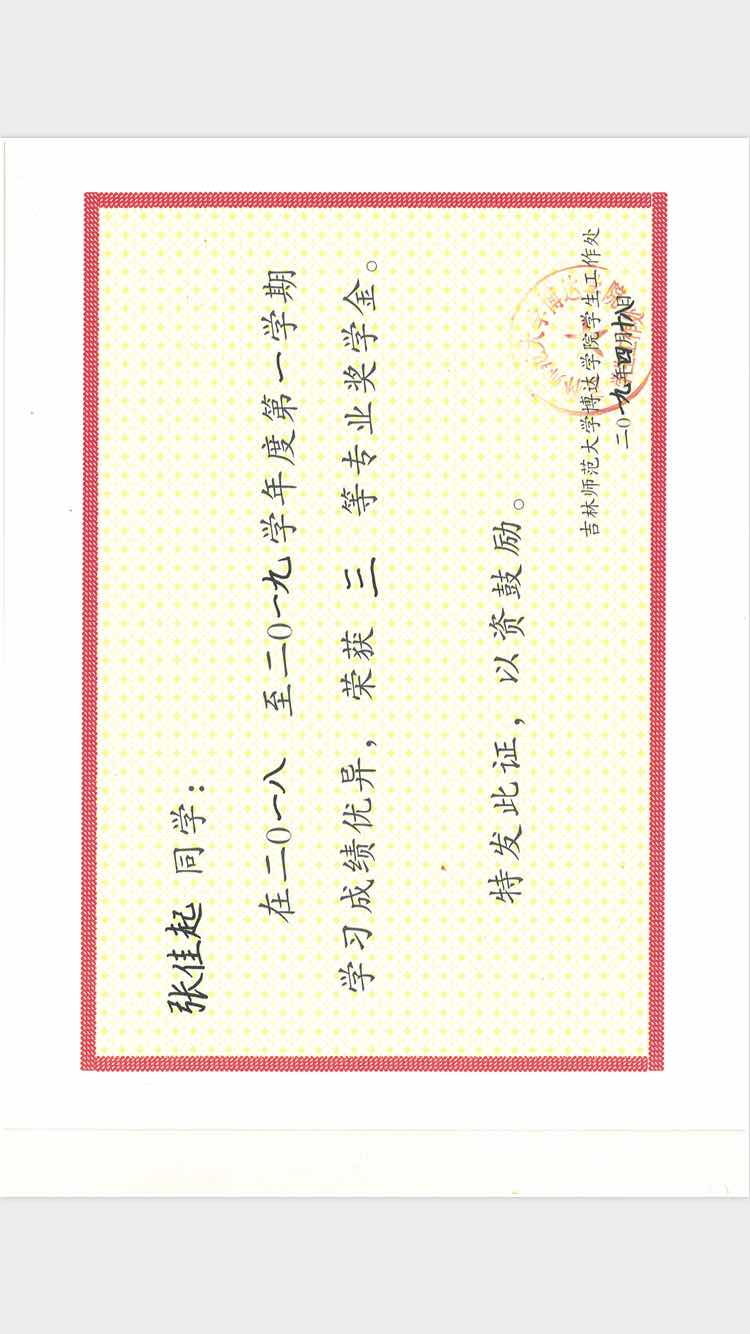 张佳起 同学：
在二〇一八 至二〇一九学年度第一学期
学习成绩优异，荣获 三 等专业奖学金。
特发此证，以资鼓励。
吉林师范大学博达学院学生工作处
二〇一九年四月十八日